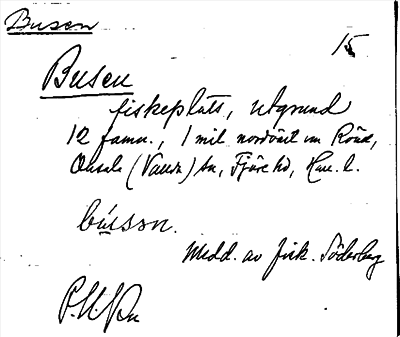 Busen
15
Busen
fiskeplats, utgrund
12 famn., 1 mil nordväst om Rönn,
Onsala (Vallda) sn, Fjäre hd, Hall. l.
bússon.
Medd. av fisk. Söderberg